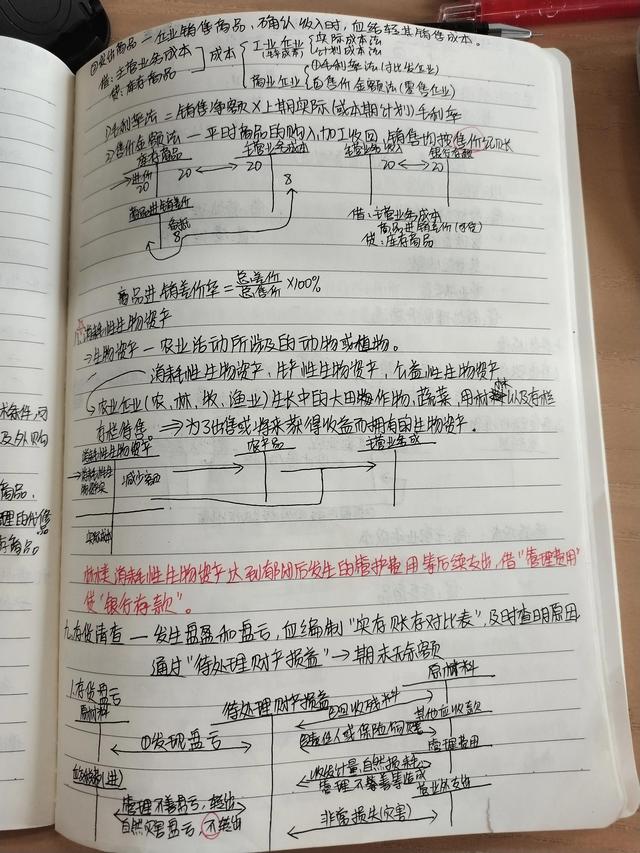 ②发出商品一企业销售商品,确认收入时,应结转其销售成本。
借:主营业务成本
贷:库存商品
成本
工业企业
实际成本法
计划成本法
商业企业
①毛利率法(批发企业)
②售价金额法(零售企业)
1)毛利率法=销售净额×上期实际(或本期计划)毛利率
2)售价金额法一平时商品的购入加工收回,销售均按售价记账
库存商品
主营业务成本
主营业务收入
银行存款
进价
20
20
20
20
20
8
商品进销差价
8
借:主营业务成本
商品进销差价
贷:库存商品
商品进销差价率=总差价/总售价×100%
消耗性生物资产
⇒生物资产一农业活动所涉及的动物或植物。
消耗性生物资产,生产性生物资产,公益性生物资产
农业企业(农、林、牧、渔业)生长中的大田作物,蔬菜,用材林以及存栏
存栏待售。⇒为了出售或将来获得收益而拥有的生物资产。
消耗性生物资产
农产品
主营业务成
减少
林类消耗性生物资产达到郁闭后发生的管护费用等后续支出,借"管理费用"
贷"银行存款"。
九、存货清查一发生盘盈和盘亏,应编制"实存账存对比表",及时查明原因
通过"待处理财产损益"→期末无余额
1.存货盘亏
原材料
待处理财产损益
原材料
①发现盘亏
②回收残料
其他应收款
责任人或保险何赔
管理费用
收发计量,自然损耗
管理不善等造成
营业外支出
管理不善盘亏,转出
自然灾害盘亏,不转出
非常损失(灾害)